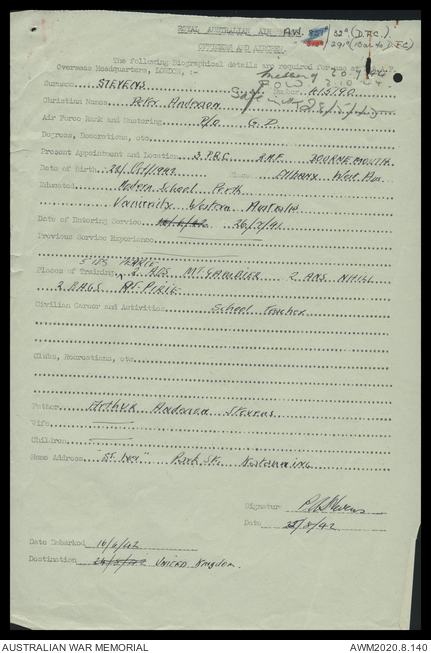 ROYAL AUSTRALIAN AIR AW. 32" (D.F.C.)
OFFICERS AND AIRCREW. 291" (Bar to D.F.C)
The following Biographical details are required for use at R.A.A.F.
Overseas Headquarters, LONDON, :-
Missing 20.9.44
P.O.W. 3.10.44
Safe in U.K.
Surname STEVENS Number 415190
Christian Names Peter Anderson
Air Force Rank and Mustering P/O G.D
Degrees, Decorations, etc
Present Appointment and Location 3 P.R.C R.A.F. BOURNEMOUTH
Date of Birth Place Albany West Aus
Educated Modern School Perth
University Western Australia
Date of Entering Service 26/7/41
Previous Service Experience
5 ITS PEARCE
Places of Training 2 AOS MT GAMBIER 2 ANS NHILL
2 BAGS PT. PIRIE
Civilian Career and Activities School Teacher
Clubs, Recreations, etc
Father Arthur Anderson Stevens
Wife
Children
Home Address Park St. Katanning
Signature P. A. Stevens
Date
Date Embarked 16/6/42
Destination United Kingdom.
AUSTRALIAN WAR MEMORIAL AWM2020.8.140